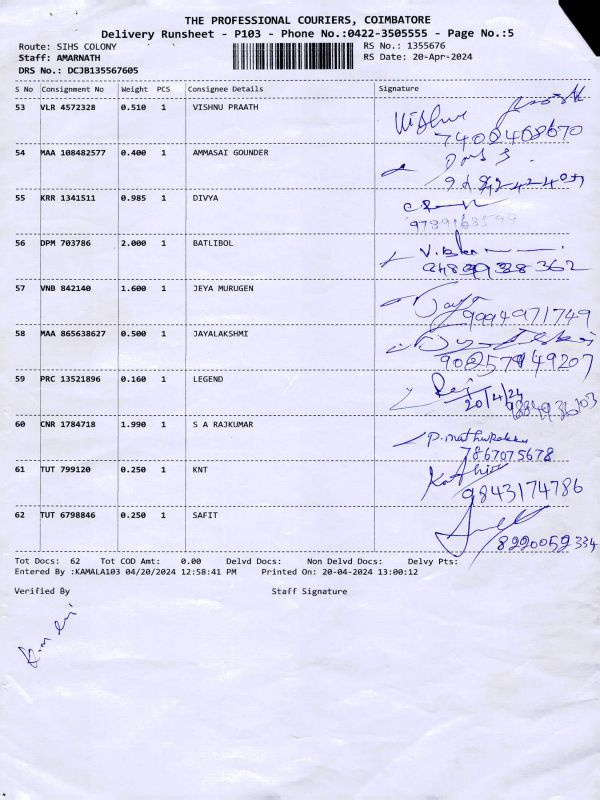 THE PROFESSIONAL COURIERS, COIMBATORE
Delivery Runsheet - P103 - Phone No.:0422-3505555 - Page No.:5
Route: SIHS COLONY
RS No.: 1355676
Staff: AMARNATH
RS Date: 20-Apr-2024
DRS No.: DCJB135567605
S No Consignment No Weight PCS Consignee Details Signature
53 VLR 4572328 0.510 1 VISHNU PRAATH
54 MAA 108482577 0.400 1 AMMASAI GOUNDER
55 KRR 1341511 0.985 1 DIVYA
56 DPM 703786 2.000 1 BATLIBOL
57 VNB 842140 1.600 1 JEYA MURUGEN
9994971749
58 MAA 865638627 0.500 1 JAYALAKSHMI
59 PRC 13521896 0.160 1 LEGEND
20/4/24
60 CNR 1784718 1.990 1 S A RAJKUMAR
7867075678
61 TUT 799120 0.250 1 KNT
9843174786
62 TUT 6798846 0.250 1 SAFIT
8220052334
Tot Docs: 62 Tot COD Amt: 0.00 Delvd Docs: Non Delvd Docs: Delvy Pts:
Entered By :KAMALA103 04/20/2024 12:58:41 PM Printed On: 20-04-2024 13:00:12
Verified By Staff Signature